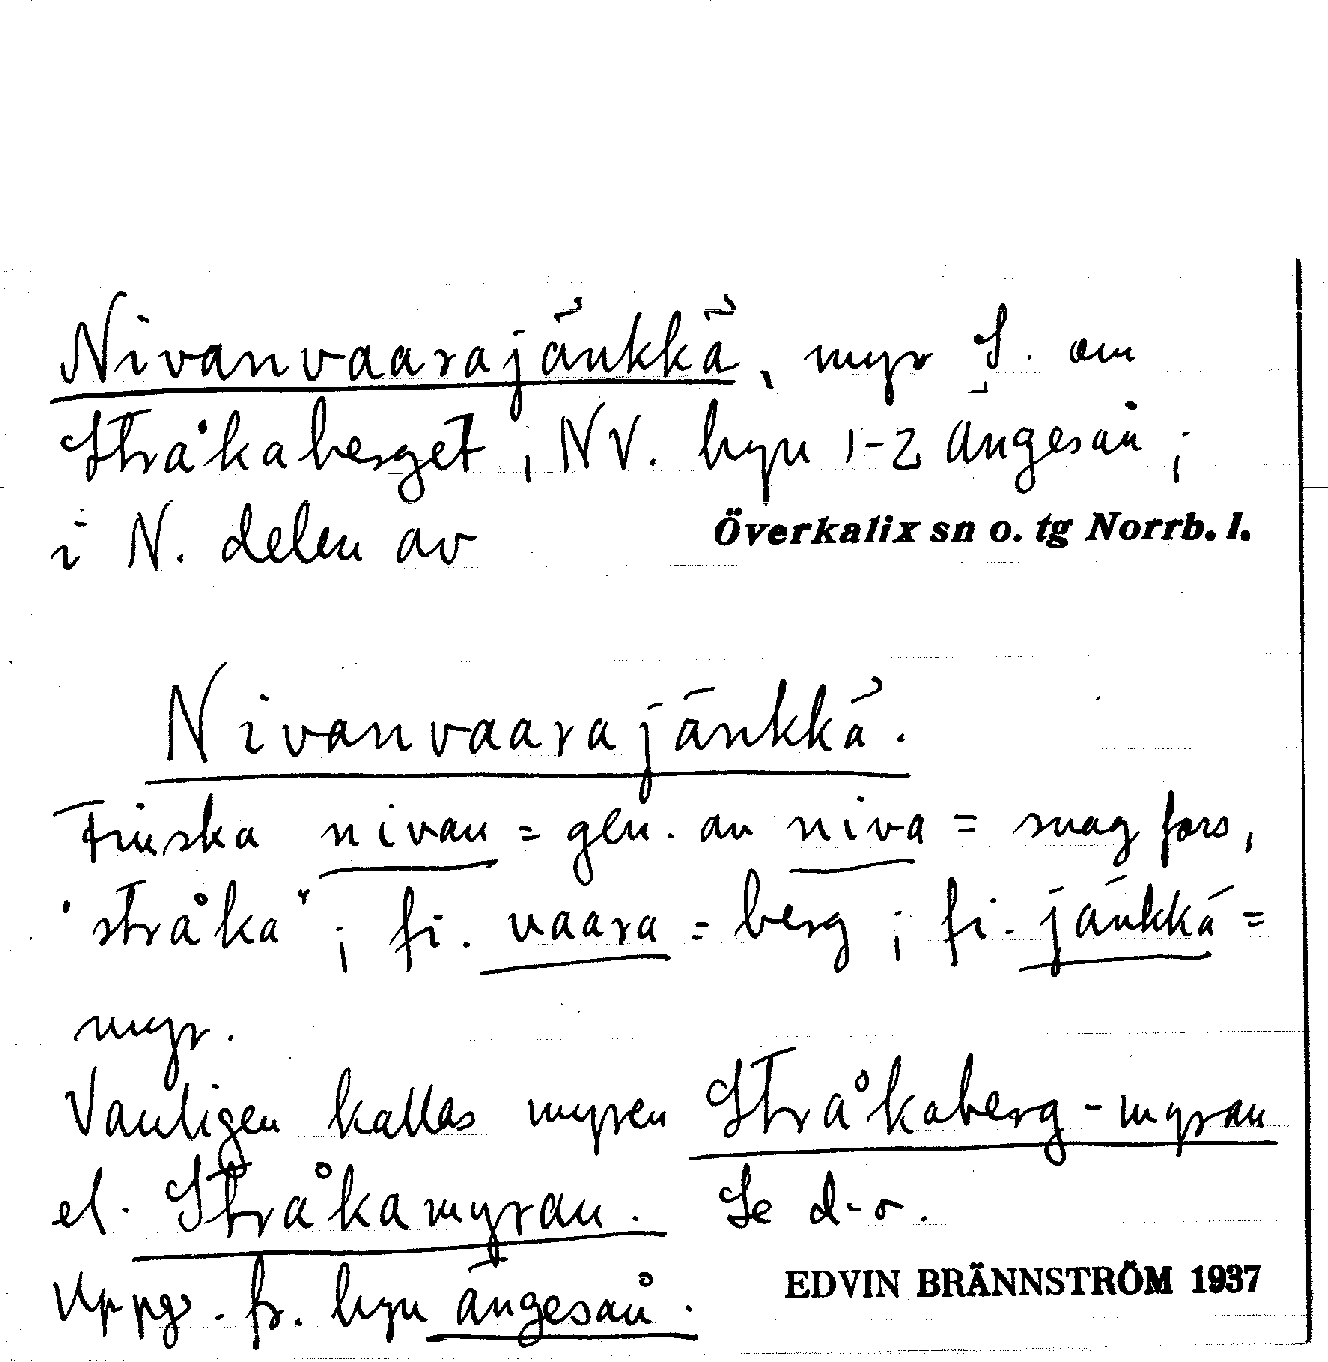 Nivanvaarajänkkä, myr S. om
Stråkaberget, NV. byn 1-2 Ängesån;
i N. delen av Överkalix sn o. tg Norrb. l.
Nivanvaarajänkkä.
Finska nivan = gen. av niva = svag fors,
"stråka"; fi. vaara = berg; fi. jänkkä =
myr.
Vanligen kallas myren Stråkaberg-myran
el. Stråkamyran. Se d-o.
Uppg. fr. byn Ängesån.
EDVIN BRÄNNSTRÖM 1937